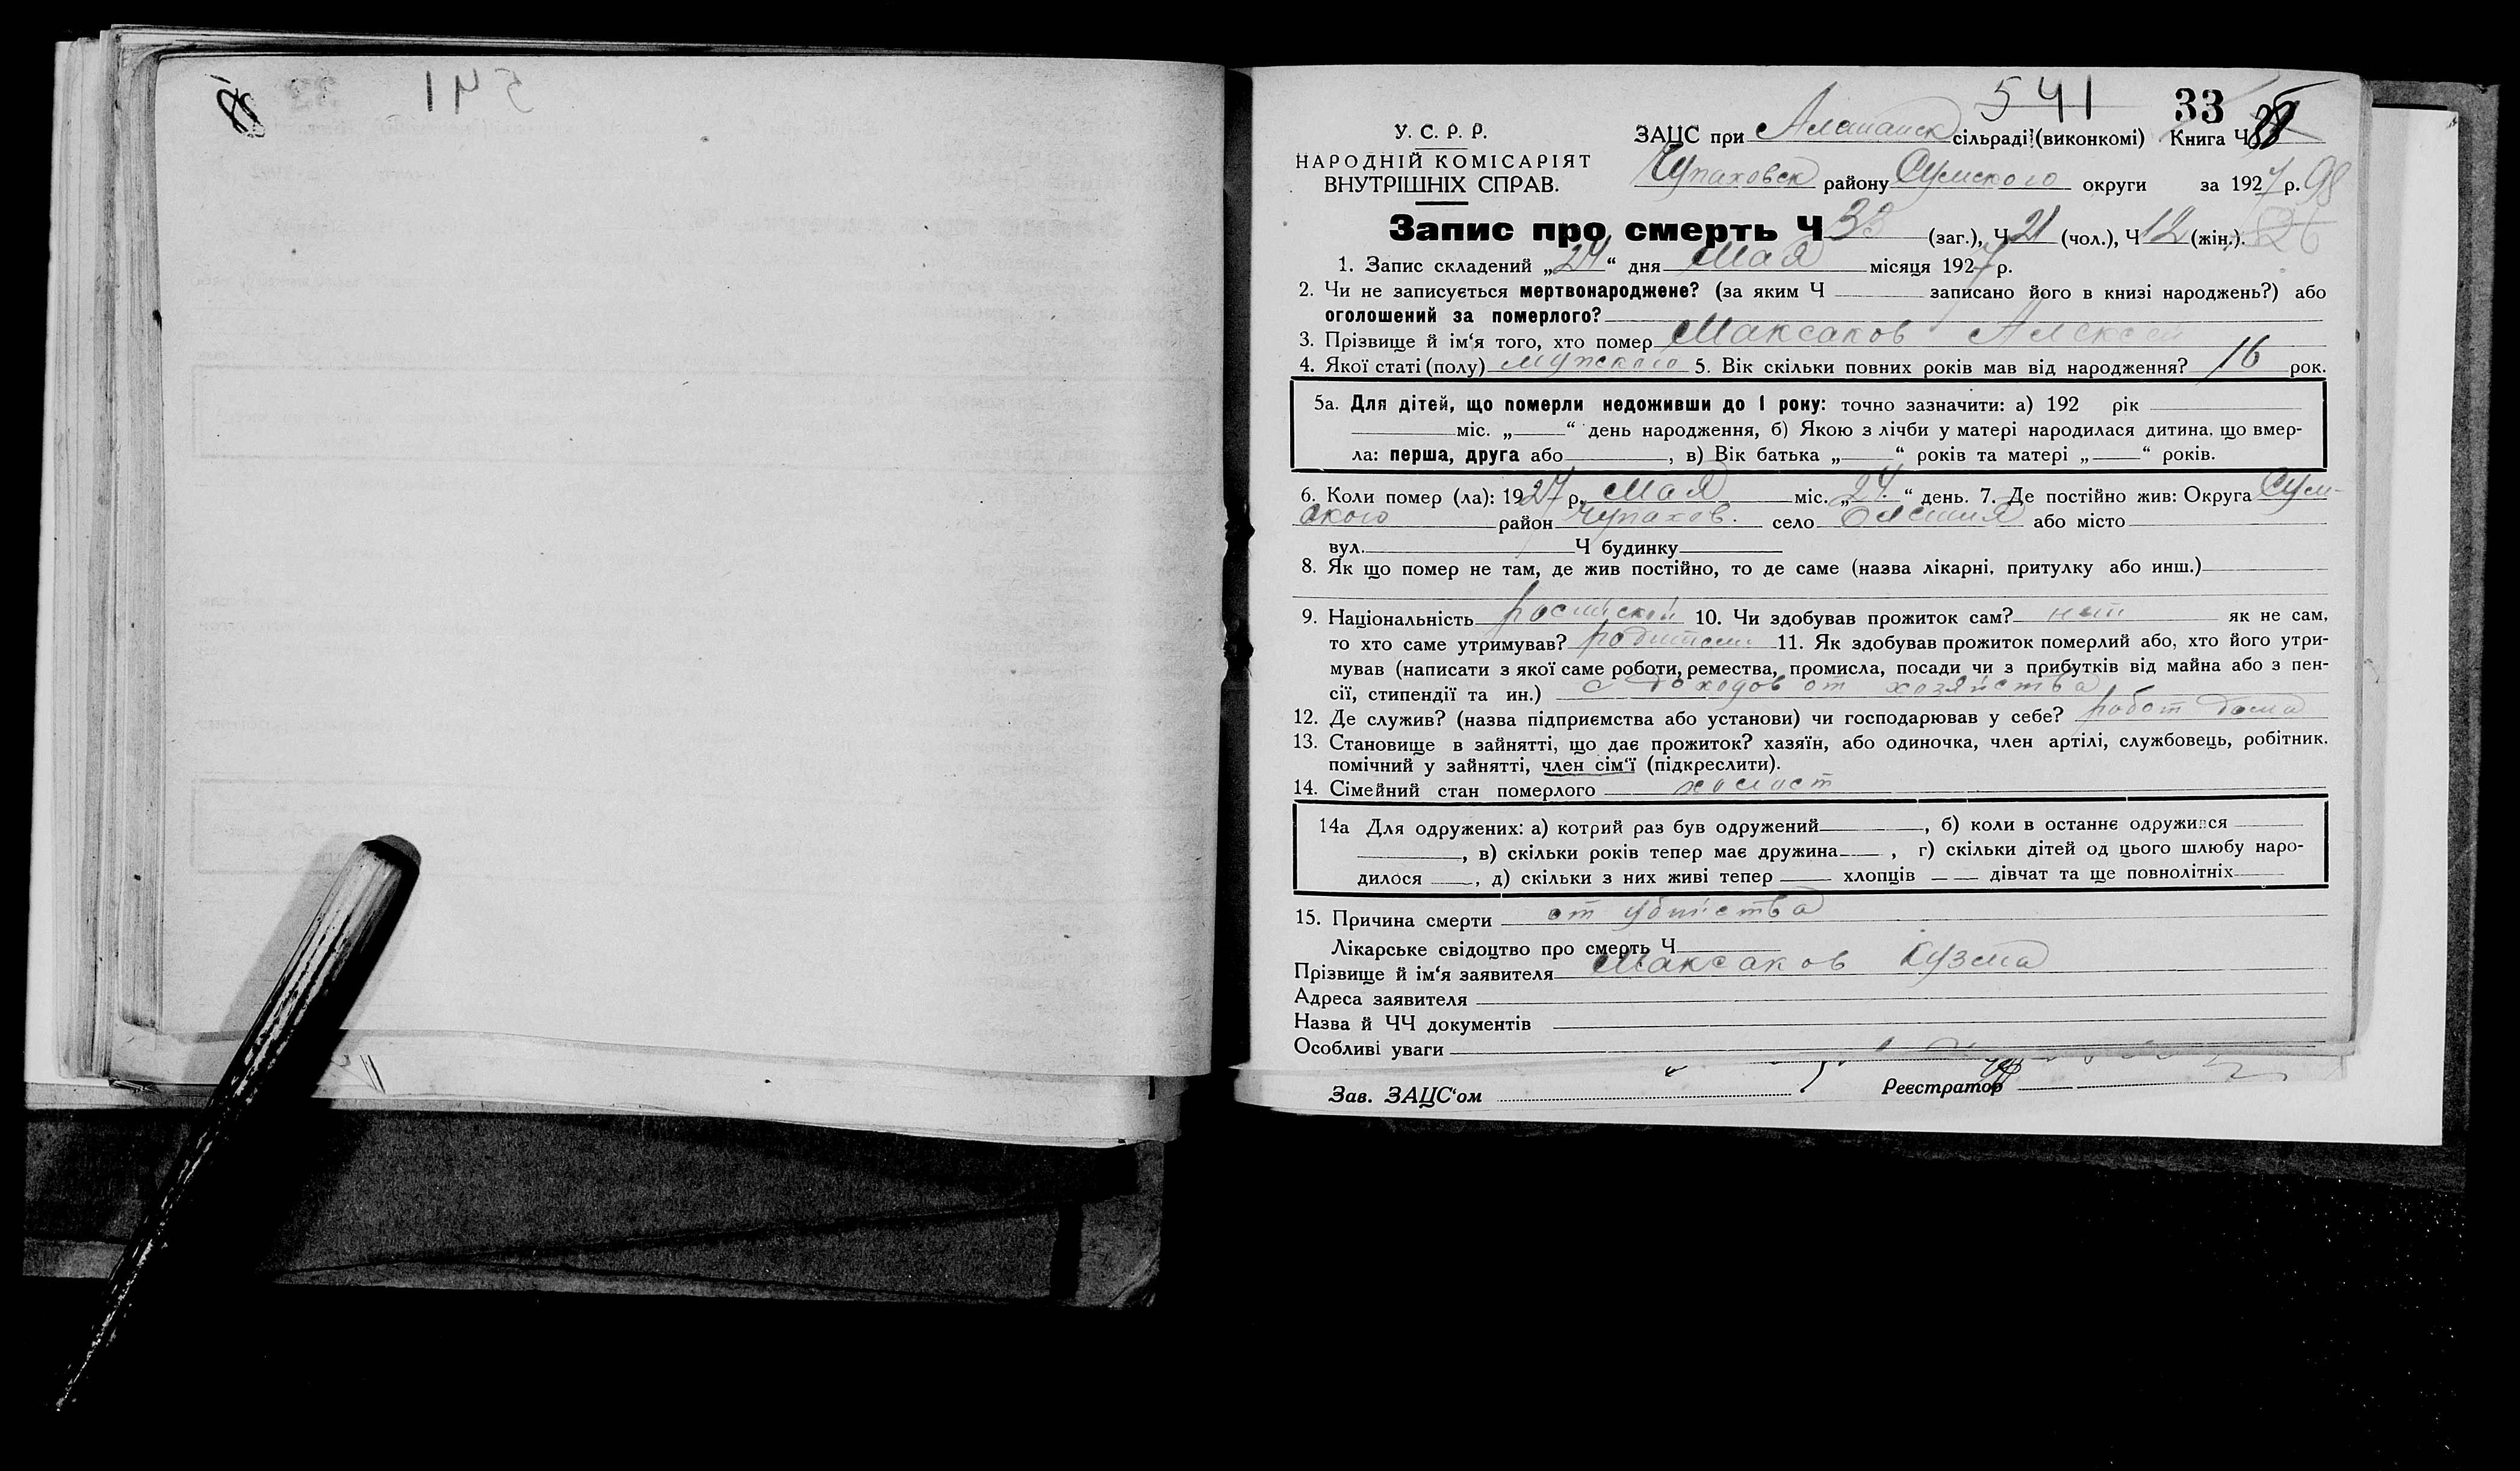 541
33
У. С. Р. Р.
НАРОДНІЙ КОМІСАРІЯТ
ВНУТРІШНІХ СПРАВ.
ЗАЦС при сільраді (виконкомі) Книга Ч
Чупаховск району Сумского округи за 1927 р. 98
Запис про смерть Ч 33 (заг.), Ч 21 (чол.), Ч 12 (жін.). 26
1. Запис складений „24“ дня Мая місяця 1927 р.
2. Чи не записується мертвонароджене? (за яким Ч записано його в книзі народжень?) або
оголошений за померлого?
3. Прізвище й ім‘я того, хто помер Максаков Алексей
4. Якої статі (полу) мужского 5. Вік скільки повних років мав від народження? 16 рок.
5а. Для дітей, що померли недоживши до 1 року: точно зазначити: а) 192 рік
міс. „ “ день народження, б) Якою з лічби у матері народилася дитина, що вмер-
ла: перша, друга або , в) Вік батька „ “ років та матері „ “ років.
6. Коли помер (ла): 1927 р. Мая міс. „24“ день. 7. Де постійно жив: Округа Сум-
ского район Чупахов. село або місто
вул. Ч будинку
8. Як що помер не там, де жив постійно, то де саме (назва лікарні, притулку або инш.)
9. Національність 10. Чи здобував прожиток сам? нет як не сам,
то хто саме утримував? родители 11. Як здобував прожиток померлий або, хто його утри-
мував (написати з якої саме роботи, ремества, промисла, посади чи з прибутків від майна або з пен-
сії, стипендії та ин.) с доходов от хозяйства
12. Де служив? (назва підприємства або установи) чи господарював у себе? робот дома
13. Становище в зайнятті, що дає прожиток? хазяїн, або одиночка, член артілі, службовець, робітник.
помічний у зайнятті, член сім‘ї (підкреслити).
14. Сімейний стан померлого холост
14а Для одружених: а) котрий раз був одружений , б) коли в останнє одружився
, в) скільки років тепер має дружина , г) скільки дітей од цього шлюбу наро-
дилося , д) скільки з них живі тепер хлопців дівчат та ще повнолітніх
15. Причина смерти от убийства
Лікарське свідоцтво про смерть Ч
Прізвище й ім‘я заявителя Максаков Кузма
Адреса заявителя
Назва й ЧЧ документів
Особливі уваги
Зав. ЗАЦС‘ом Реєстратор